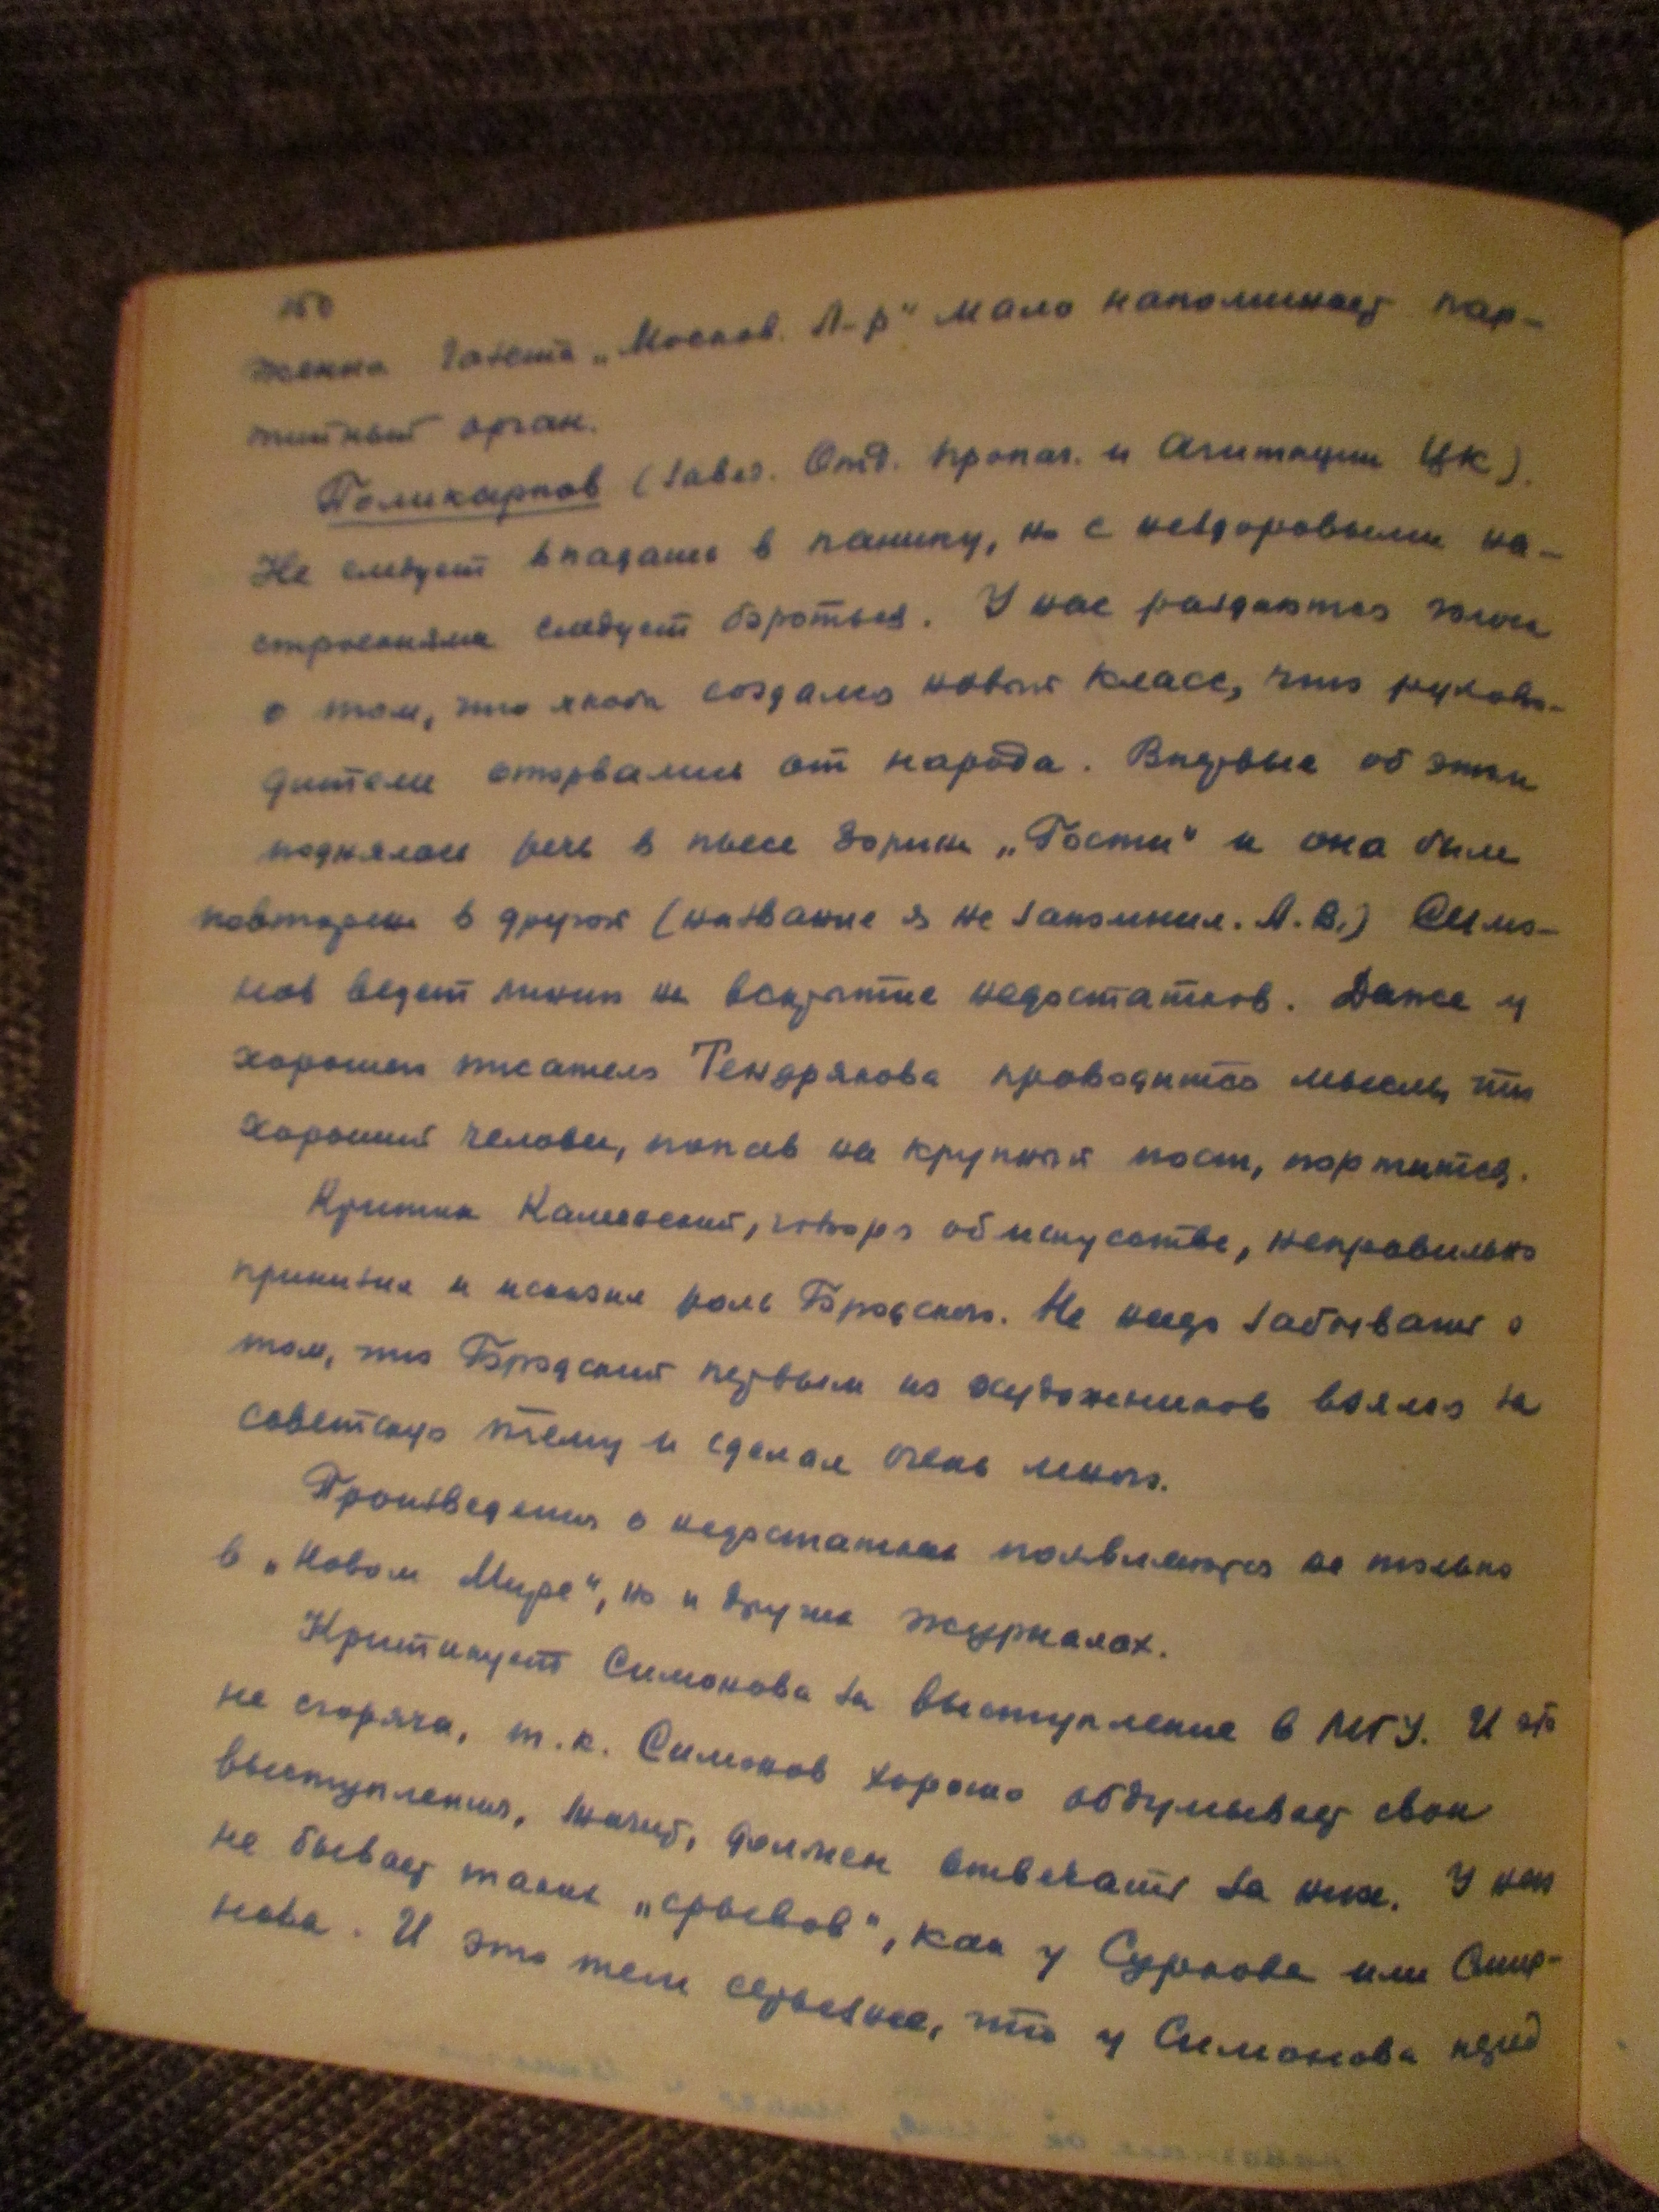 160
жении газета „Москов. Л-р" мало напоминает пар-
тийный орган.
Поликарпов (завед. Отд. пропаг. и агитации ЦК).
Не следует впадать в панику, но с нездоровыми на-
строениями следует бороться. У нас раздаются голоса
о том, что якобы создался новый класс, что руково-
дители оторвались от народа. Впервые об этом
поднялась речь в пьесе Зорина „Гости" и она была
повторена в другой (название я не запомнил. Л.В.) Симо-
нов ведет линию на вскрытие недостатков. Даже у
хорошего писателя Тендрякова проводится мысль, что
хороший человек, попав на крупный пост, портится.
Критик Каменский, говоря об искусстве, неправильно
принизил и исказил роль Бродского. Не надо забывать о
том, что Бродский первым из художников взялся за
советскую тему и сделал очень много.
Произведения о недостатках появляются не только
в „Новом Мире", но и других журналах.
Критикует Симонова за выступление в МГУ. И это
не сгоряча, т.к. Симонов хорошо обдумывает свои
выступления, значит, должен отвечать за них. У него
не бывает таких „срывов", как у Суркова или Смир-
нова. И это тем серьезнее, что у Симонова перед